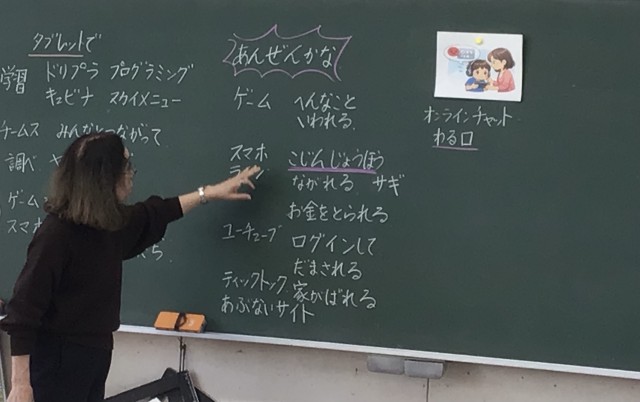 タブレットで
学習 ドリプラ プログラミング
キュビナ スカイメニュー
チームス みんなとつながって
調べ
ゲーム
スマホ
あんぜんかな
ゲーム へんなこと
いわれる
スマホ こじんじょうほう
ながれる サギ
お金をとられる
ユーチューブ ログインして
だまされる
ティックトック 家がばれる
あぶないサイト
オンラインチャット
わる口